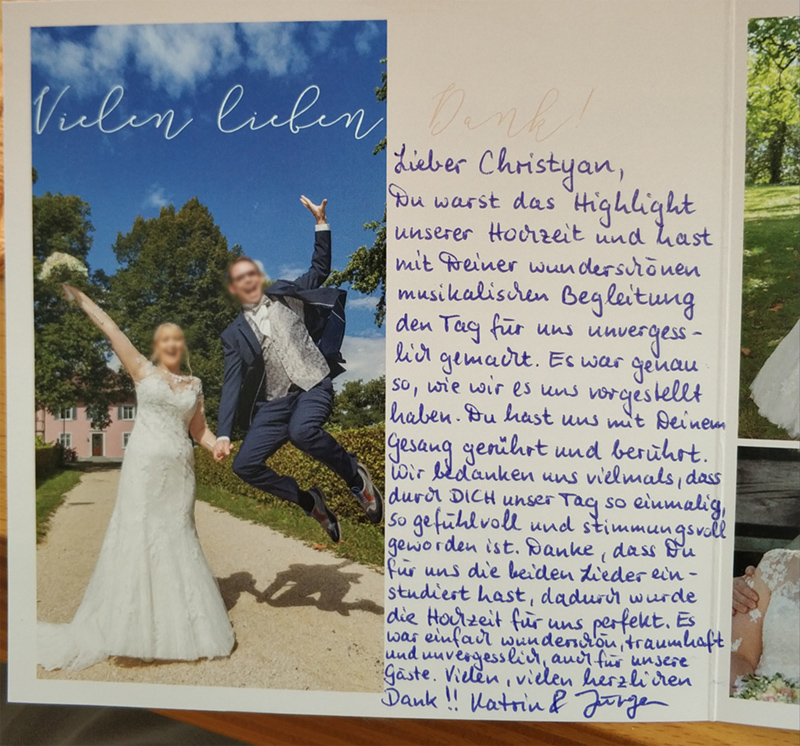 Vielen lieben Dank!
Lieber Christyan,
Du warst das Highlight
unserer Hochzeit und hast
mit Deiner wunderschönen
musikalischen Begleitung
den Tag für uns unvergess-
lich gemacht. Es war genau
so, wie wir es uns vorgestellt
haben. Du hast uns mit Deinem
Gesang gerührt und berührt.
Wir bedanken uns vielmals, dass
durch DICH unser Tag so einmalig,
so gefühlvoll und stimmungsvoll
geworden ist. Danke, dass Du
für uns die beiden Lieder ein-
studiert hast, dadurch wurde
die Hochzeit für uns perfekt. Es
war einfach wunderschön, traumhaft
und unvergesslich, auch für unsere
Gäste. Vielen, vielen herzlichen
Dank!! Katrin & Jürgen